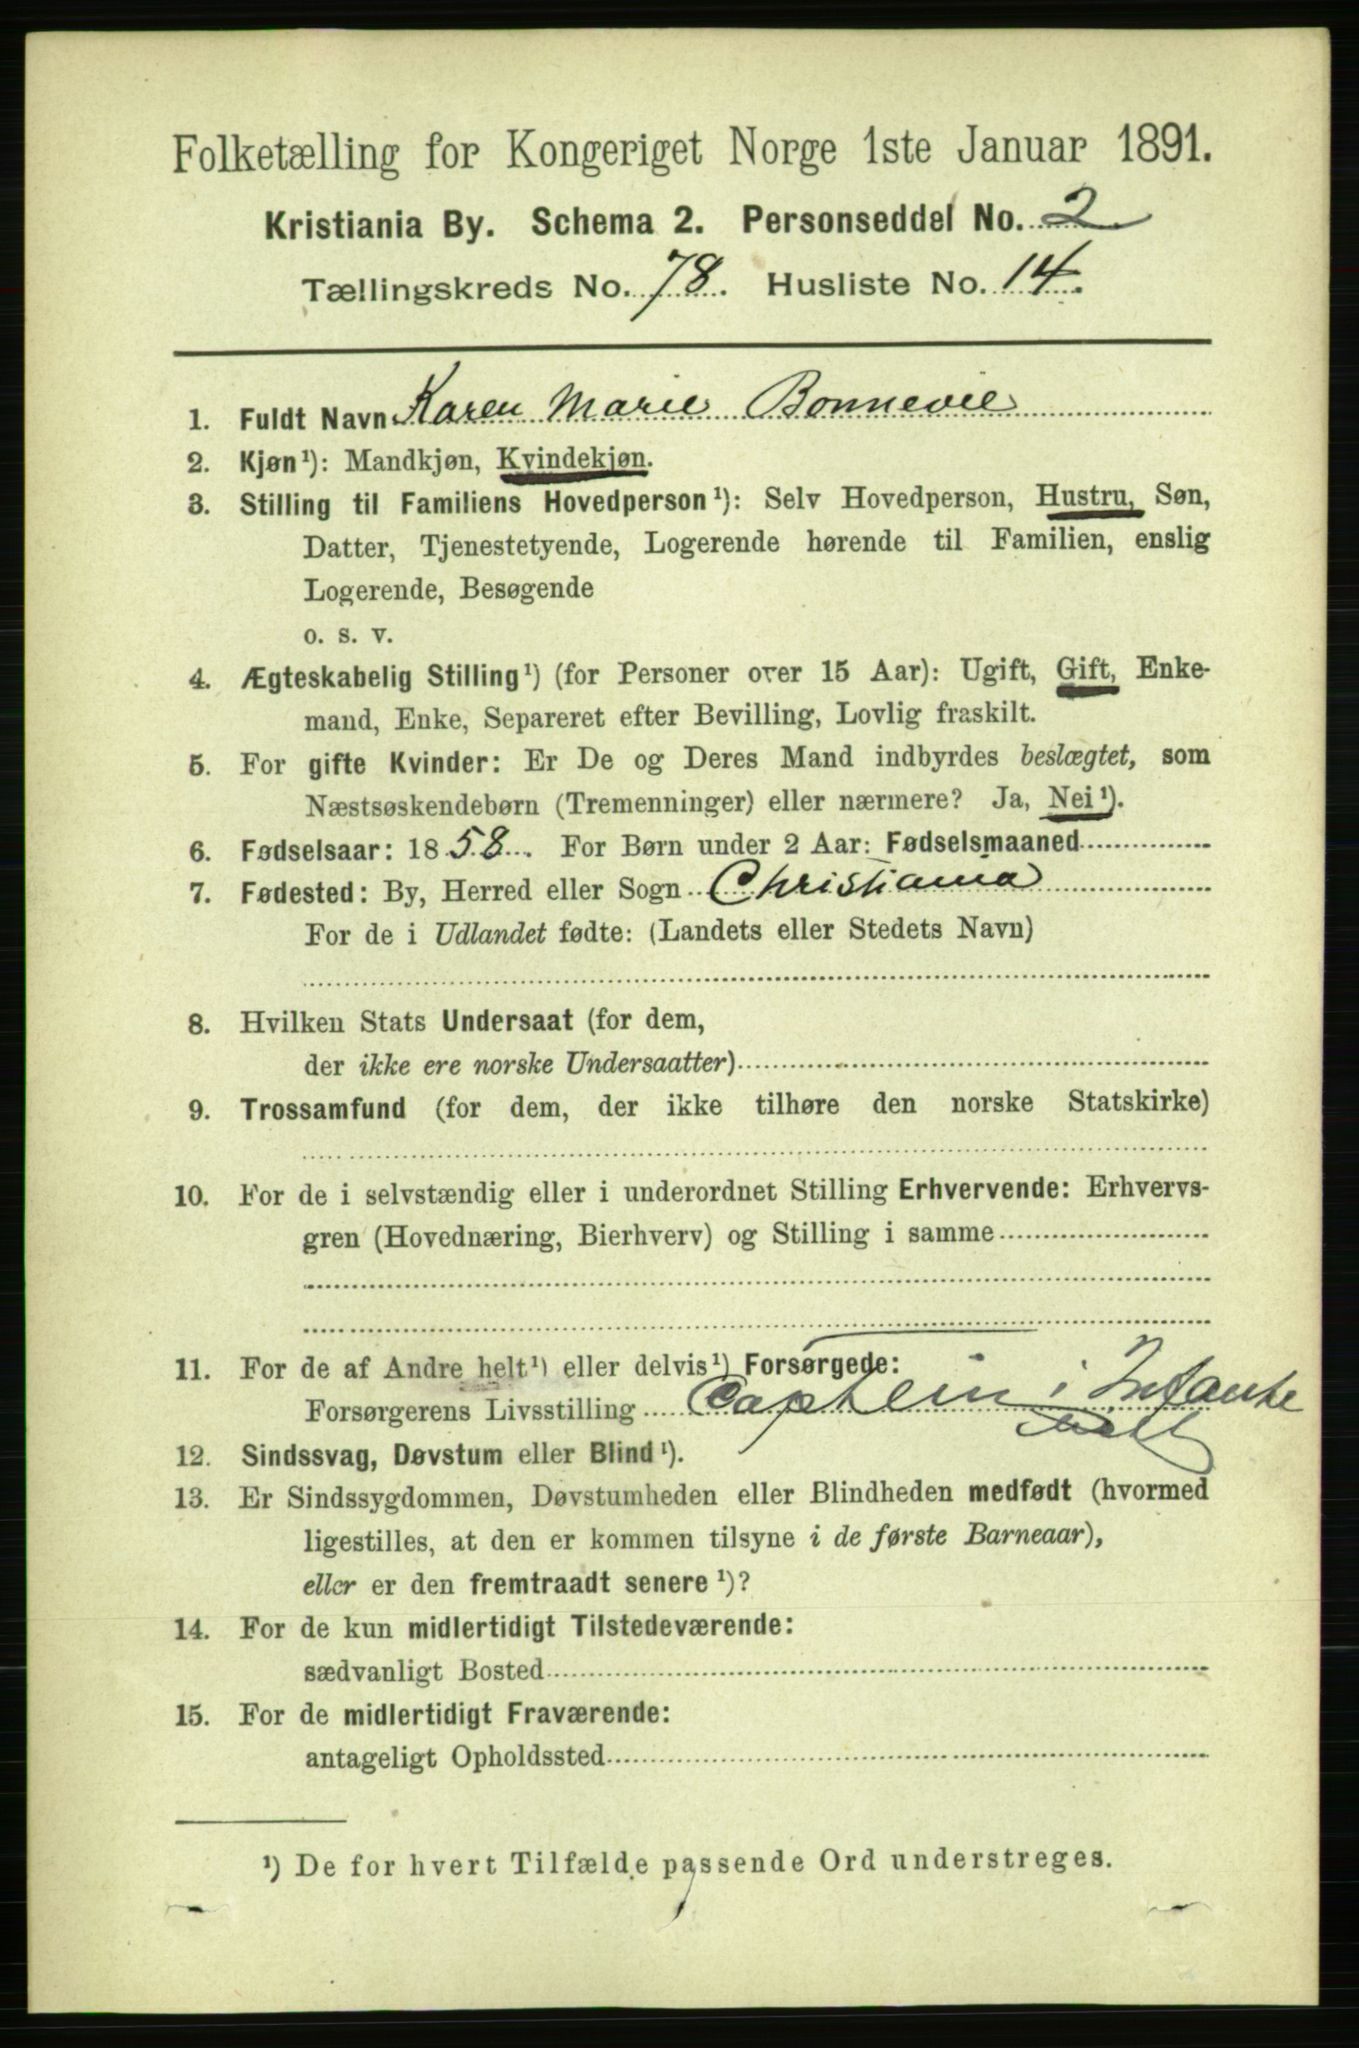 Folketælling for Kongeriget Norge 1ste Januar 1891.
Kristiania By. Schema 2. Personseddel No. 2
Tællingskreds No. 78. Husliste No. 14.
1. Fuldt Navn Karen Marie Bonnevie
2. Kjøn¹): Mandkjøn, Kvindekjøn.
3. Stilling til Familiens Hovedperson¹): Selv Hovedperson, Hustru, Søn,
Datter, Tjenestetyende, Logerende hørende til Familien, enslig
Logerende, Besøgende
o. s. v.
4. Ægteskabelig Stilling¹) (for Personer over 15 Aar): Ugift, Gift, Enke-
mand, Enke, Separeret efter Bevilling, Lovlig fraskilt.
5. For gifte Kvinder: Er De og Deres Mand indbyrdes beslægtet, som
Næstsøskendebørn (Tremenninger) eller nærmere? Ja, Nei¹).
6. Fødselsaar: 1858. For Børn under 2 Aar: Fødselsmaaned
7. Fødested: By, Herred eller Sogn Christiania
For de i Udlandet fødte: (Landets eller Stedets Navn)
8. Hvilken Stats Undersaat (for dem,
der ikke ere norske Undersaatter)
9. Trossamfund (for dem, der ikke tilhøre den norske Statskirke)
10. For de i selvstændig eller i underordnet Stilling Erhvervende: Erhvervs-
gren (Hovednæring, Bierhverv) og Stilling i samme
11. For de af Andre helt¹) eller delvis¹) Forsørgede:
Forsørgerens Livsstilling Captein i Infante
12. Sindssvag, Døvstum eller Blind¹).
13. Er Sindssygdommen, Døvstumheden eller Blindheden medfødt (hvormed
ligestilles, at den er kommen tilsyne i de første Barneaar),
eller er den fremtraadt senere¹)?
14. For de kun midlertidigt Tilstedeværende:
sædvanligt Bosted
15. For de midlertidigt Fraværende:
antageligt Opholdssted
¹) De for hvert Tilfælde passende Ord understreges.